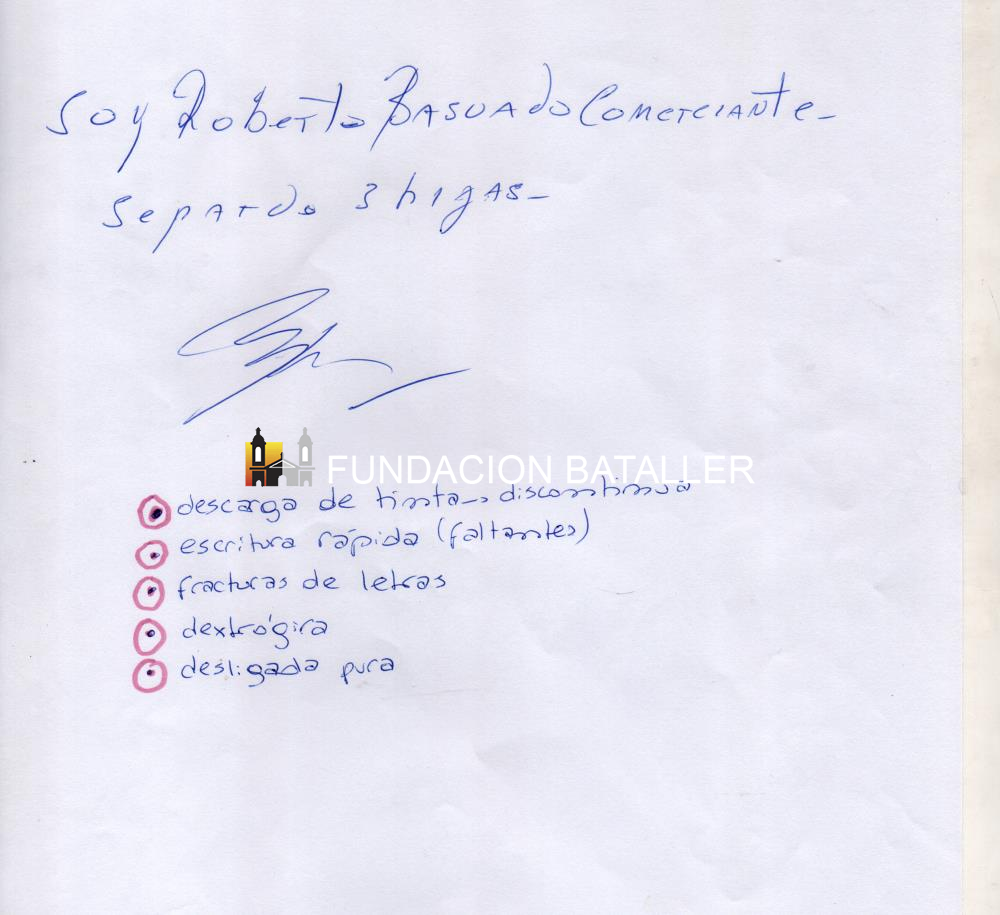 Soy Roberto BASUAdo ComerciANte-
SepArdo 3 hijas-
FUNDACION BATALLER
descarga de tinta -> discontinua
escritura rápida (faltantes)
fracturas de letras
dextrógira
desligada pura